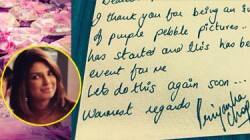 I thank you for being an
of purple pebble pictures..
has started and this has be
event for me
Lets do this again soon...
Warmest regards
Priyanka